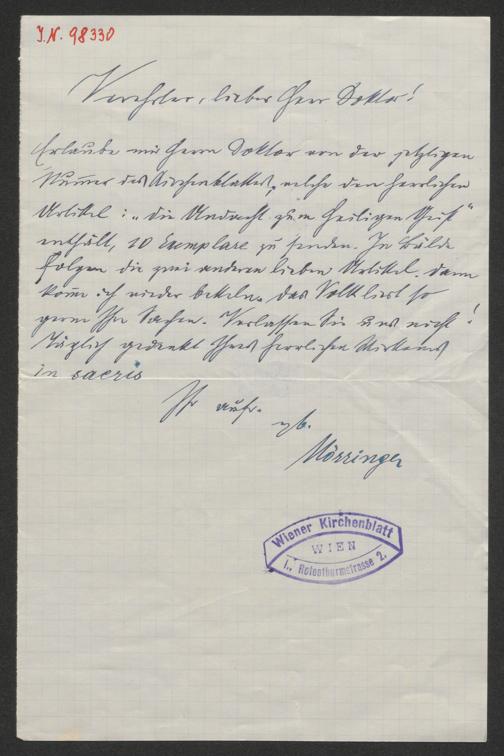 I.N. 98330
Verehrter, lieber Herr Doktor!
Erlaube mir Herrn Doktor von der jetzigen
Nummer des Kirchenblattes, welche den herrlichen
Artikel: „Die Andacht zum Heiligen Geist“
enthält, 10 Exemplare zu senden. In Bälde
folgen die zwei anderen lieben Artikel. Dann
komme ich wieder betteln. Das Volk liest so
gerne Ihre Sachen. Verlassen Sie uns nicht!
Täglich gedenkt Ihres herrlichen Wirkens
in sacris
Ihr aufr.
erg.
Mörzinger
Wiener Kirchenblatt
WIEN
I., Rotenthurmstrasse 2.